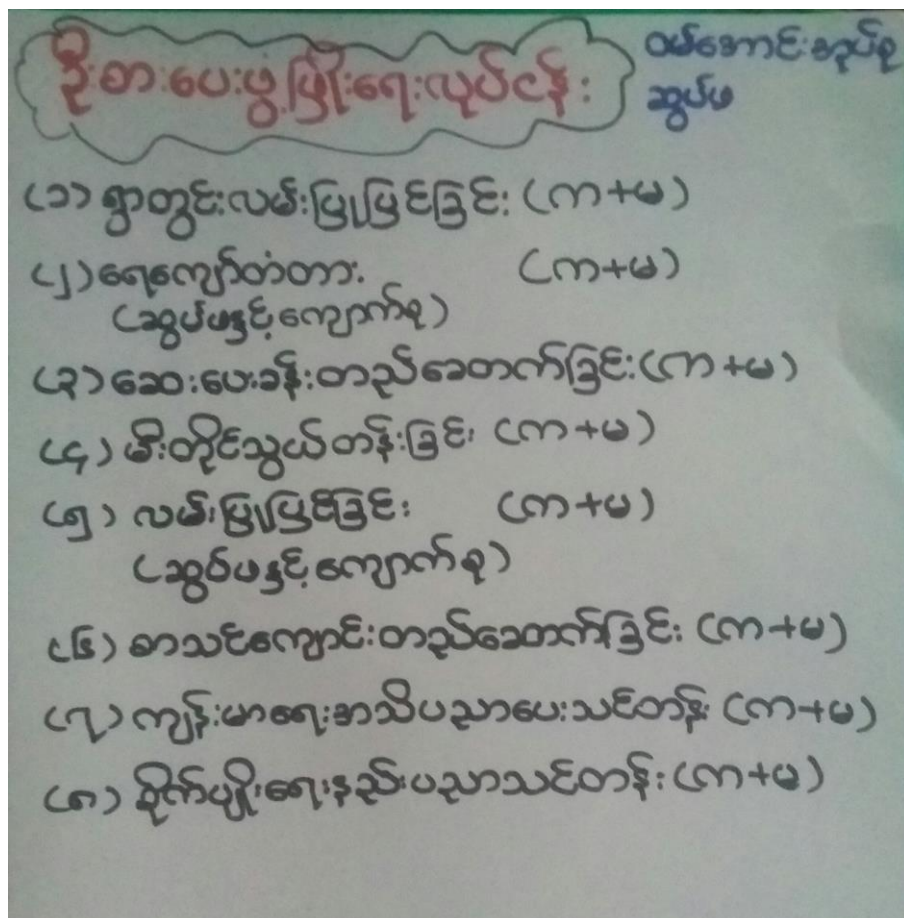 ဦးစားပေးဖွံ့ဖြိုးရေးလုပ်ငန်း
ဝမ်အောင်းအုပ်စု
ဆွပ်ဖ
(၁) ရွာတွင်းလမ်းပြုပြင်ခြင်း (ကာ+မ)
(၂) ရေကျော်တံတား (ကာ+မ)
(ဆွပ်ဖနှင့်ကျောက်စု)
(၃) ဆေးပေးခန်းတည်ဆောက်ခြင်း (ကာ+မ)
(၄) မီးတိုင်သွယ်တန်းခြင်း (ကာ+မ)
(၅) လမ်းပြုပြင်ခြင်း (ကာ+မ)
(ဆွပ်ဖနှင့်ကျောက်စု)
(၆) စာသင်ကျောင်းတည်ဆောက်ခြင်း (ကာ+မ)
(၇) ကျန်းမာရေးအသိပညာပေးသင်တန်း (ကာ+မ)
(၈) စိုက်ပျိုးရေးနည်းပညာသင်တန်း (ကာ+မ)